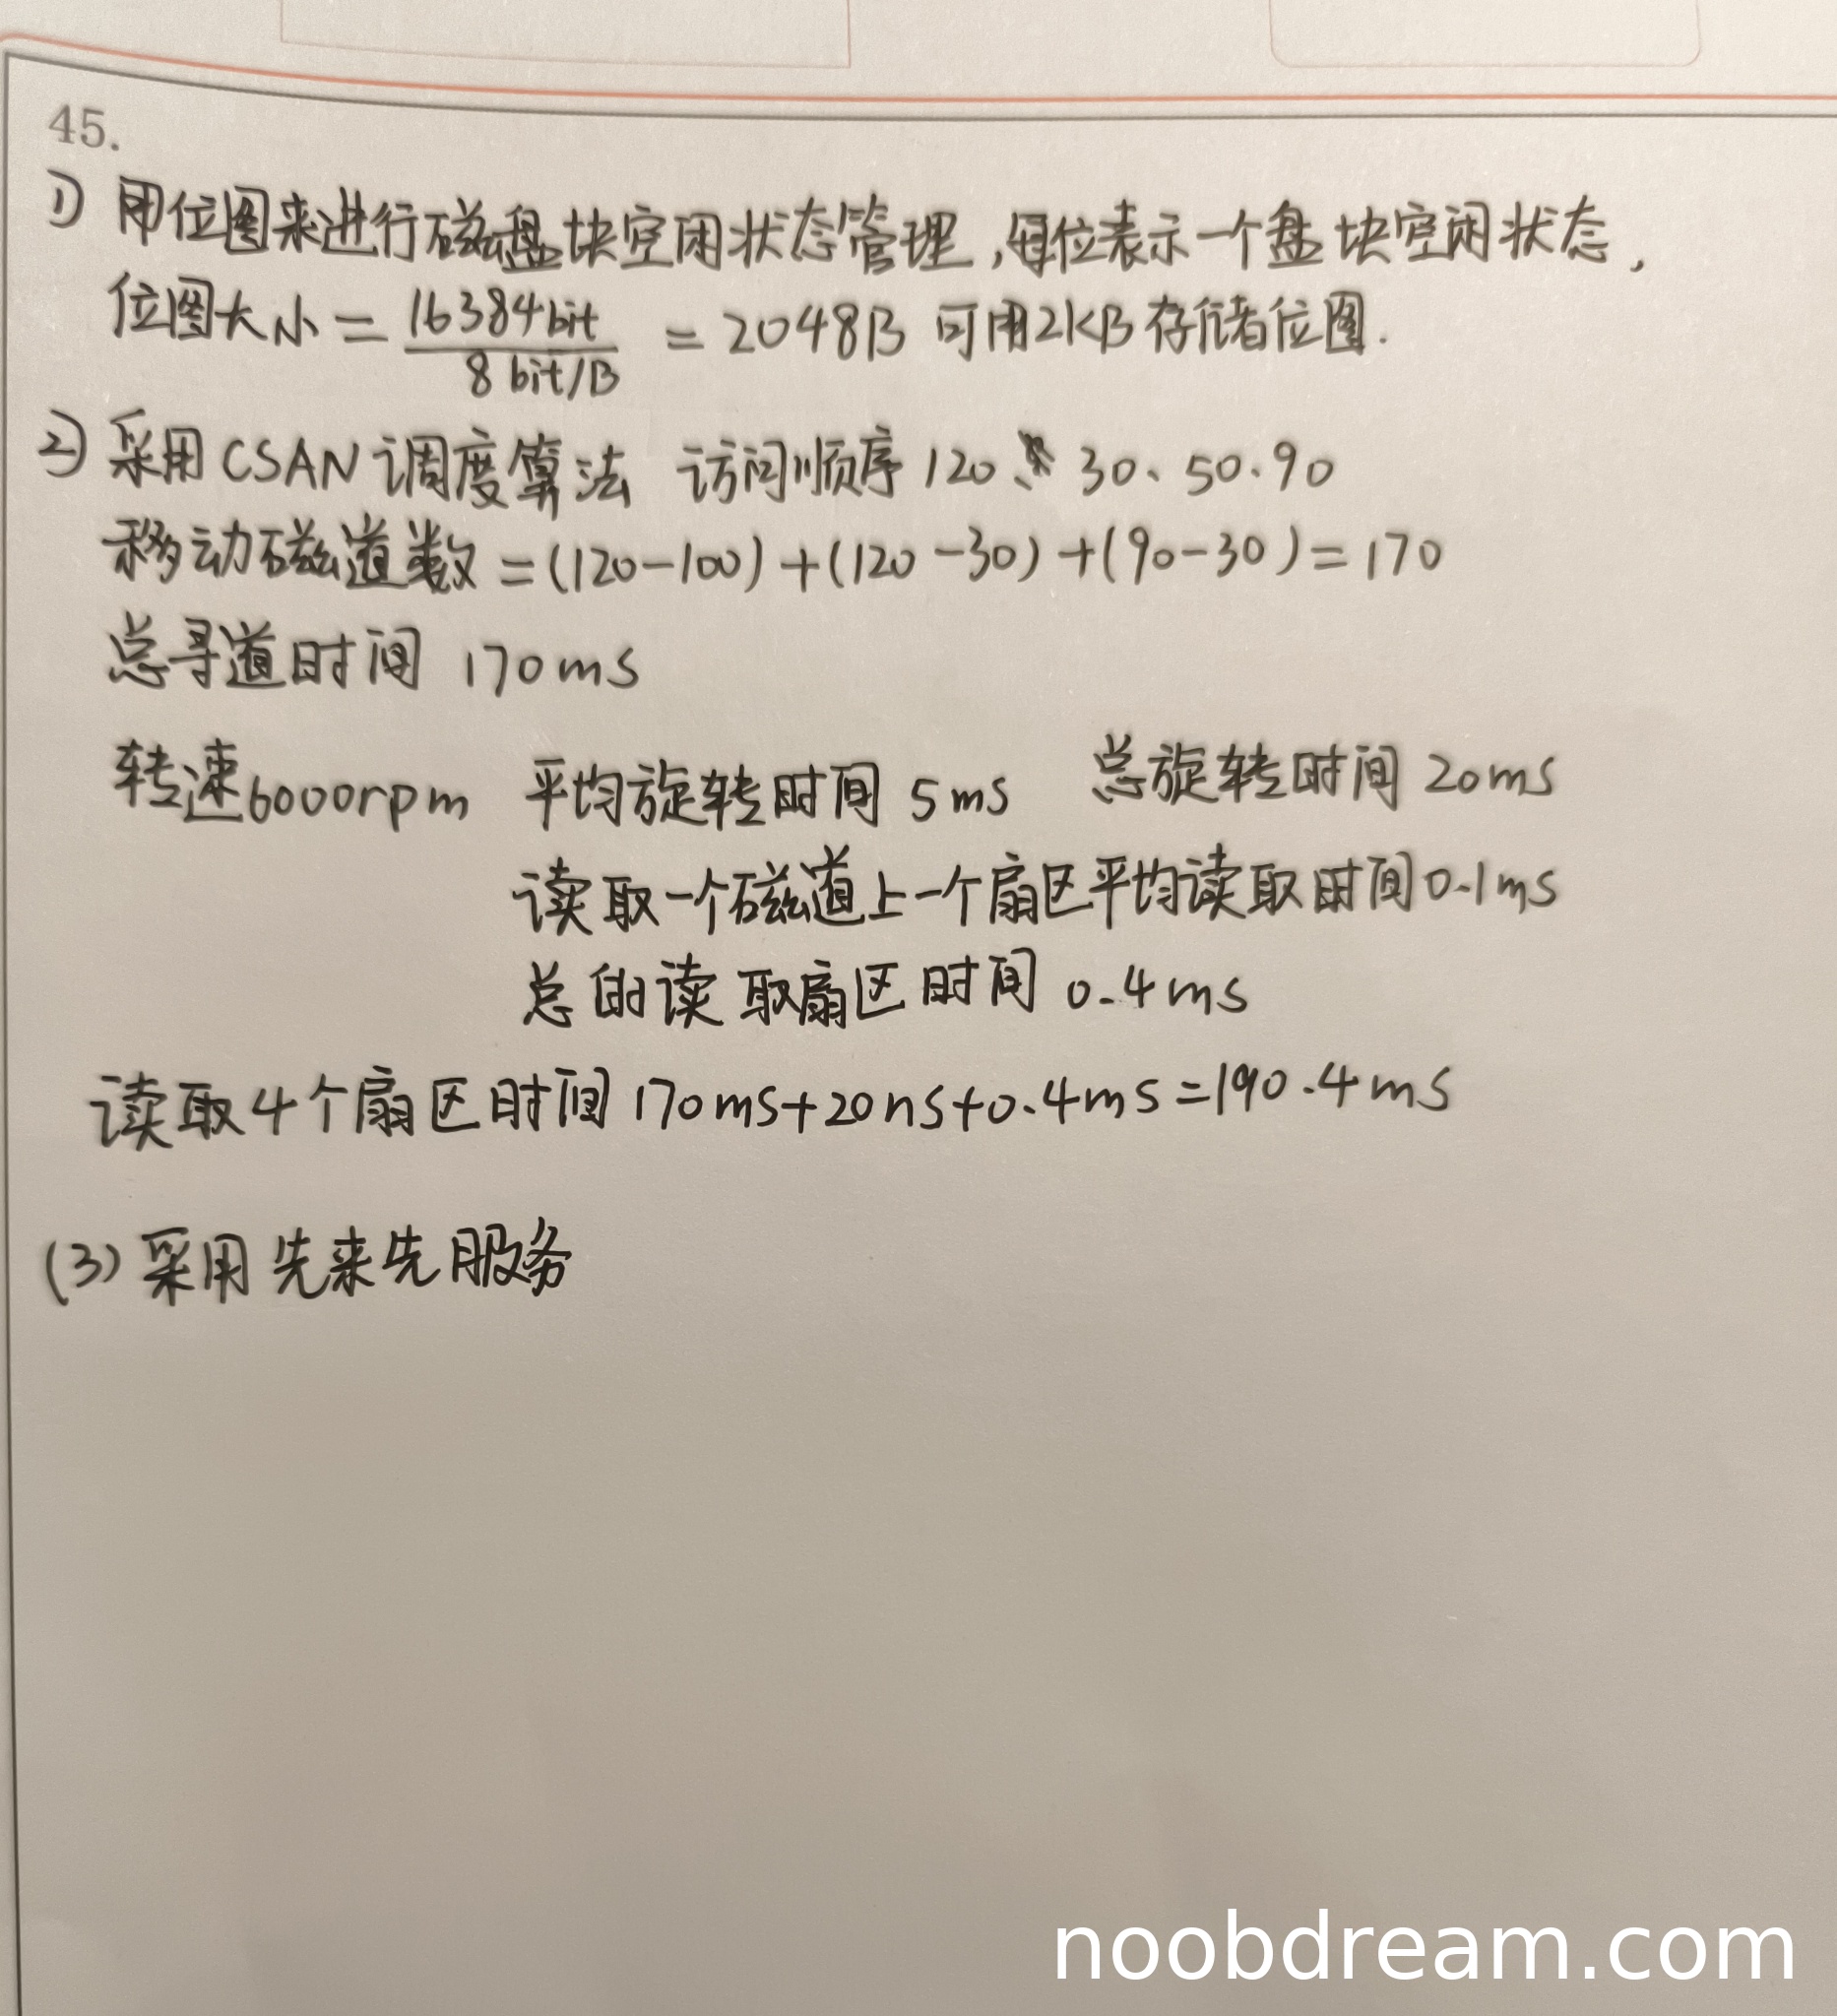 45.
1) 用位图来进行磁盘块空闲状态管理，每位表示一个盘块空闲状态，
位图大小 = 16384bit / 8 bit/B = 2048B 可用2KB存储位图.
2) 采用CSAN调度算法 访问顺序 120、30、50、90
移动磁道数 = (120-100) + (120-30) + (90-30) = 170
总寻道时间 170ms
转速6000rpm 平均旋转时间 5ms 总旋转时间 20ms
读取一个磁道上一个扇区平均读取时间0.1ms
总的读取扇区时间 0.4ms
读取4个扇区时间 170ms+20ns+0.4ms=190.4ms
(3) 采用先来先服务
noobdream.com